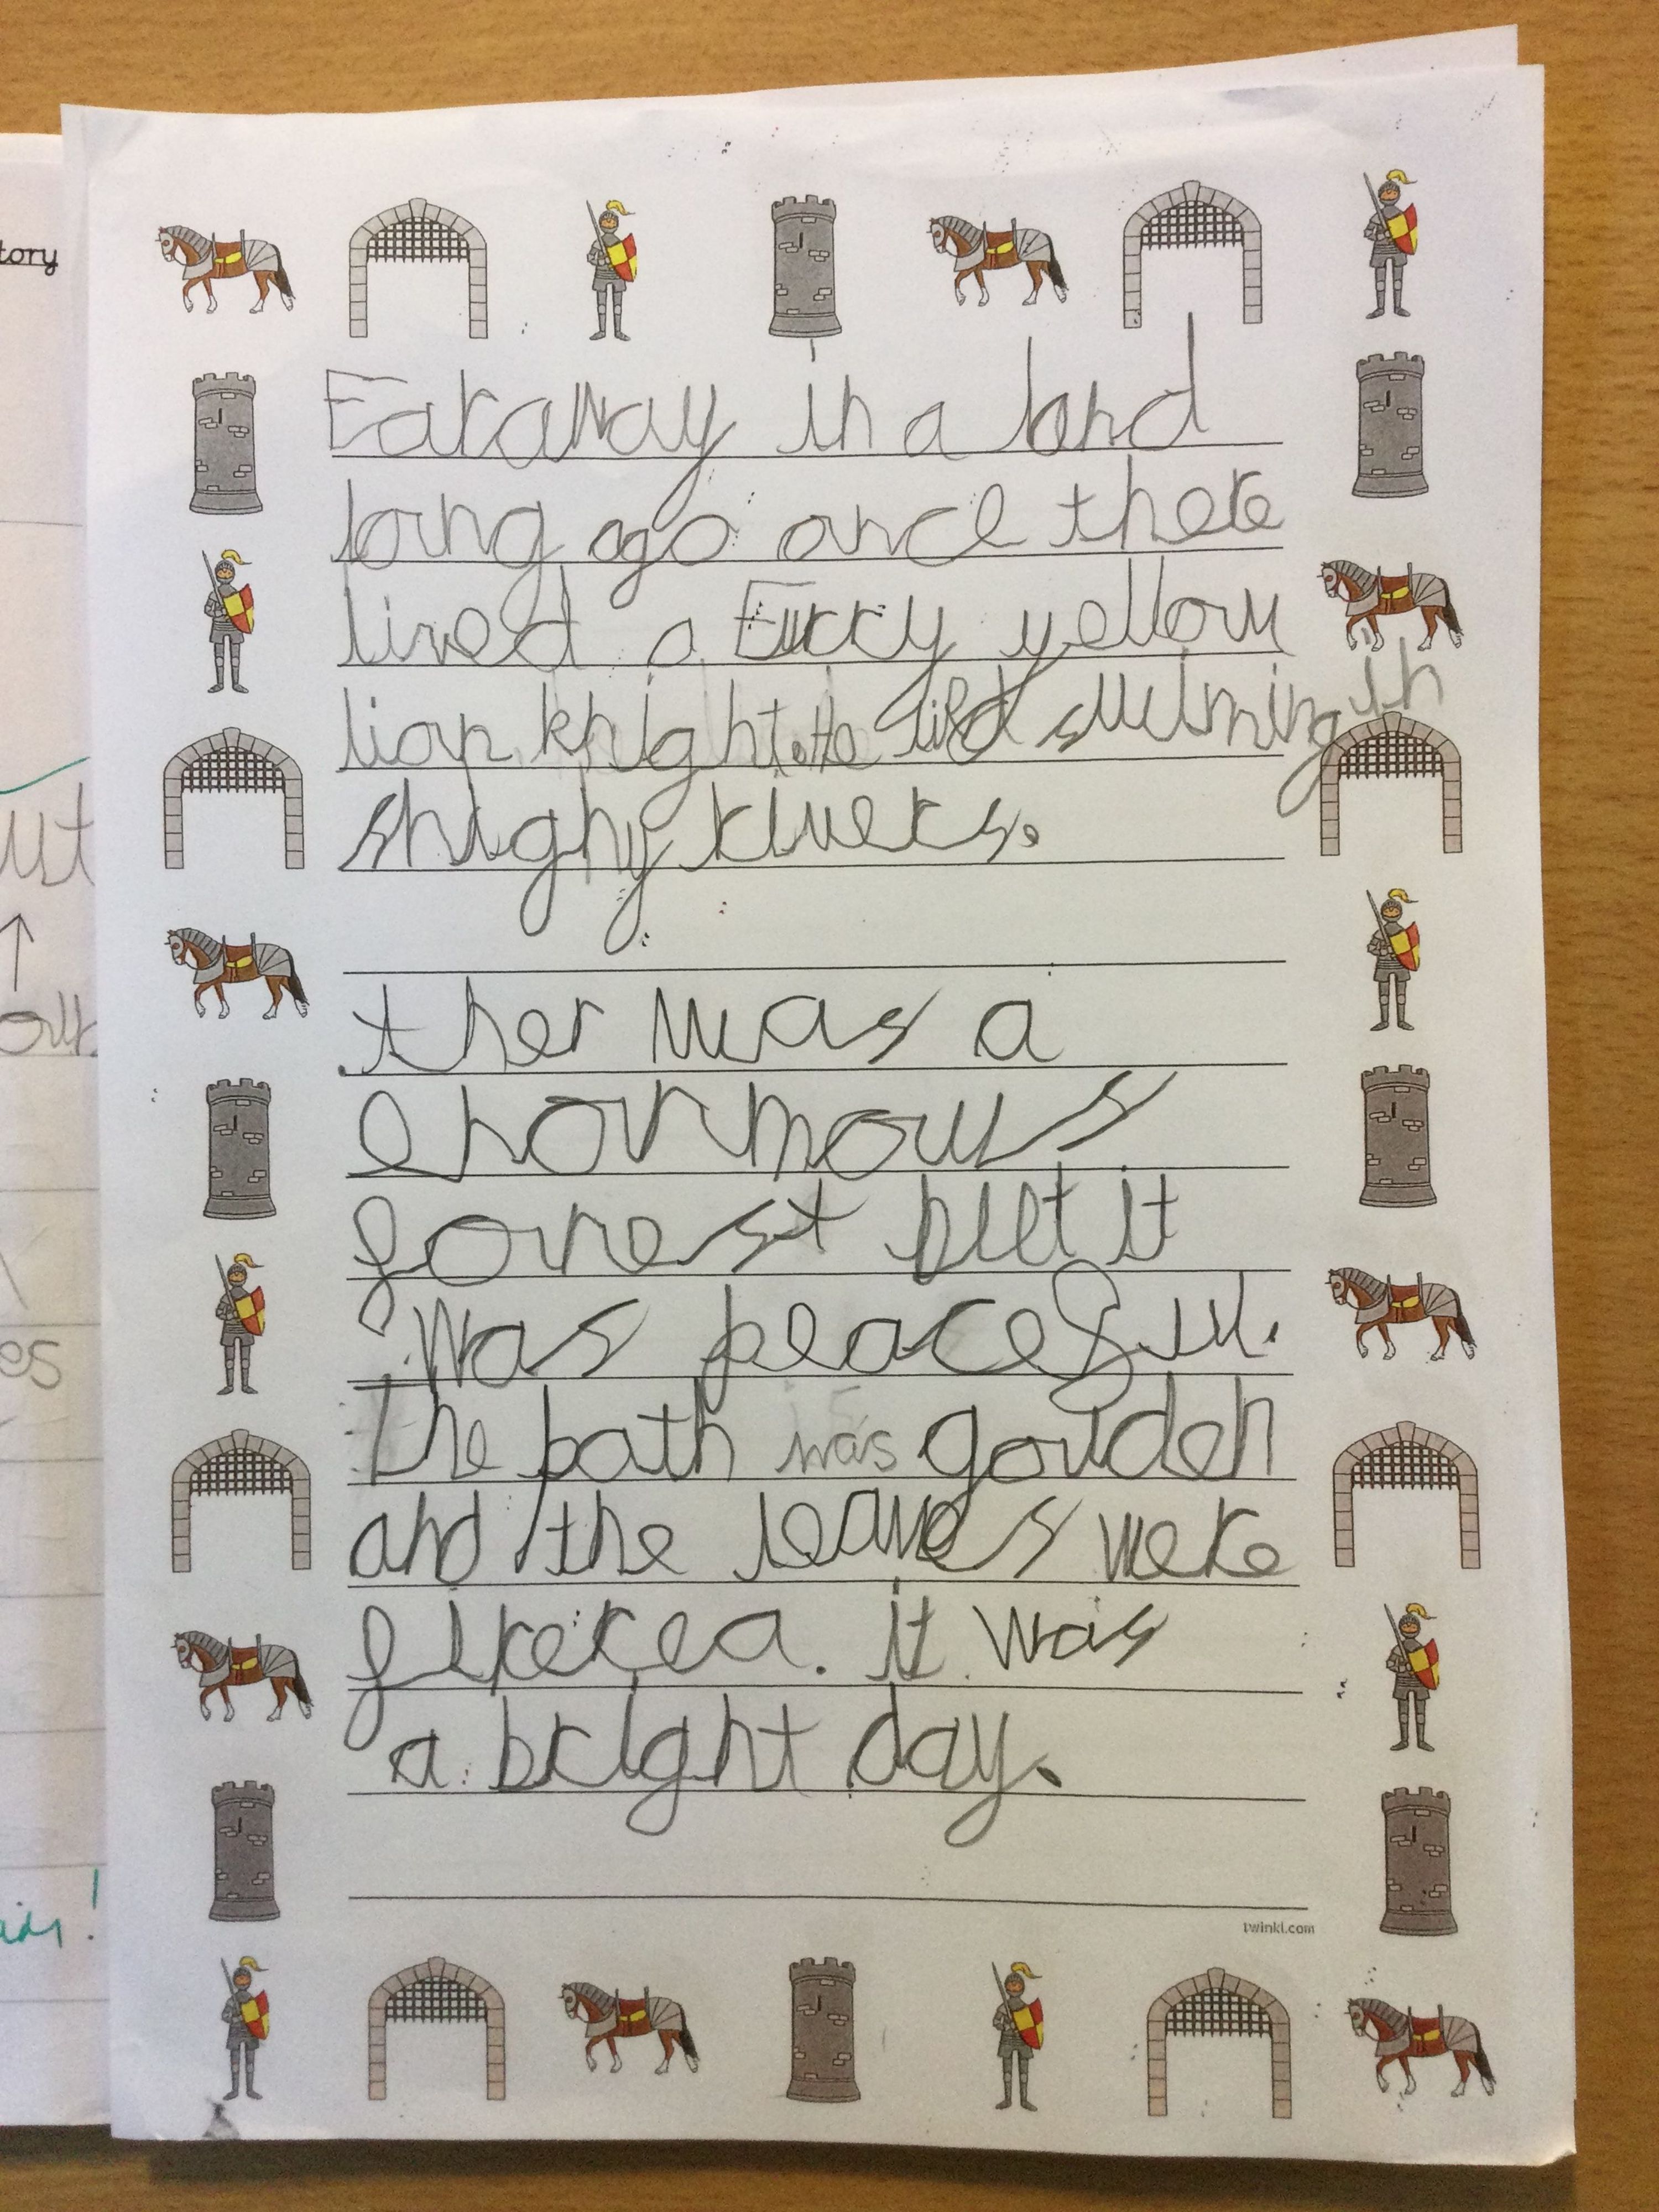 tory
ut
our
es
Faraway in a land
long ago once there
lived a Furry yellow
lion knight. He likd swiming in
shighy rivers.
ther was a
enormous
forrest but it
was peaceful.
The path was goulden
and the leaves were
firerea. it was
a bright day.
twinkl.com